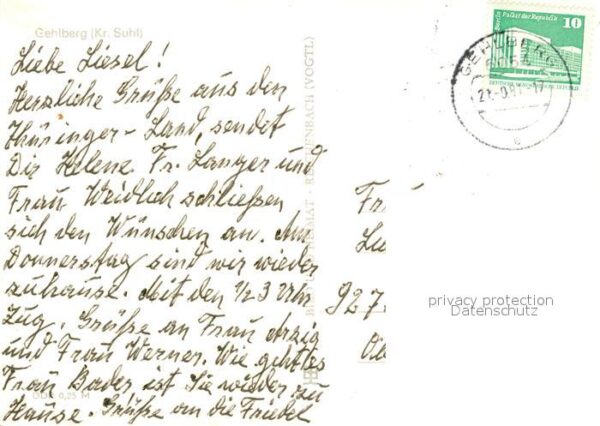 Gehlberg (Kr. Suhl)
Liebe Liesel!
Herzliche Grüße aus den
Thüringer-Land, sendet
Dir Helene. Fr. Langer und
Frau Weidlich schließen
sich den Wünschen an. Am
Donnerstag sind wir wieder
zuhause. Mit den 1/2 3 Uhr
Zug. Grüße an Frau Arzig
und Frau Werner. Wie geht es
Frau Bader ist Sie wieder zu
Hause. Grüße an die Friedel
DDR 0,25 M
BILD UND HEIMAT REICHENBACH (VOGTL)
Berlin, Palast der Republik
10
DEUTSCHE DEMOKRATISCHE REPUBLIK
GEHLBERG
Fr
927
privacy protection
Datenschutz